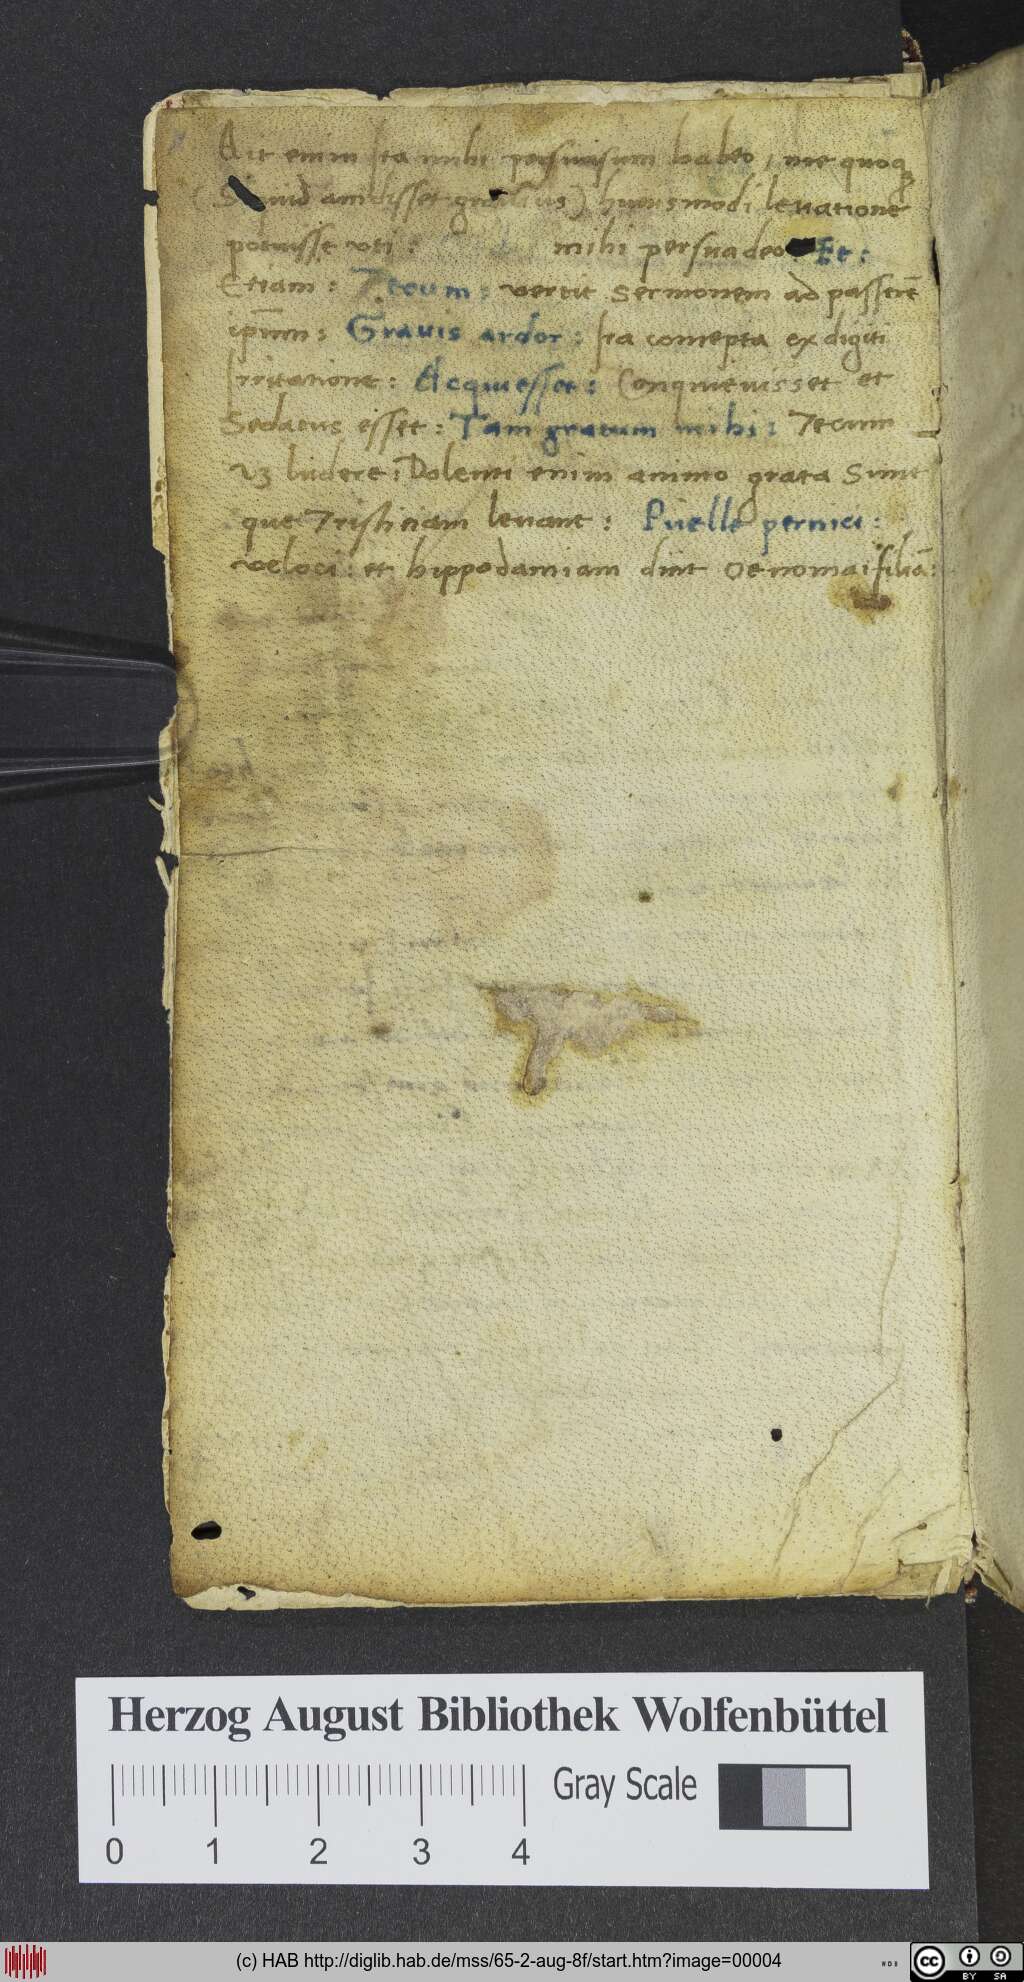 Ait enim Ita mihi persuasum habeo, me quoq
(Siquid amdisset gravius) huiusmodi levatione
potuisse uti: mihi persuadeo: Et:
Etiam: Tecum: vertit sermonem ad passerē
ip̄um: Gravis ardor: Ira concepta ex digiti
Irritatione: Acquiesset: Conquievisset et
Sedatus esset: Tam gratum mihi: Tecum
uꝫ ludere: Dolenti enim animo grata sunt
que Tristitiam levant: Puelle pernici:
veloci: et hippodamiam dīnt Oenomai filiā:
Herzog August Bibliothek Wolfenbüttel
0 1 2 3 4 Gray Scale
(c) HAB http://diglib.hab.de/mss/65-2-aug-8f/start.htm?image=00004
cc BY SA